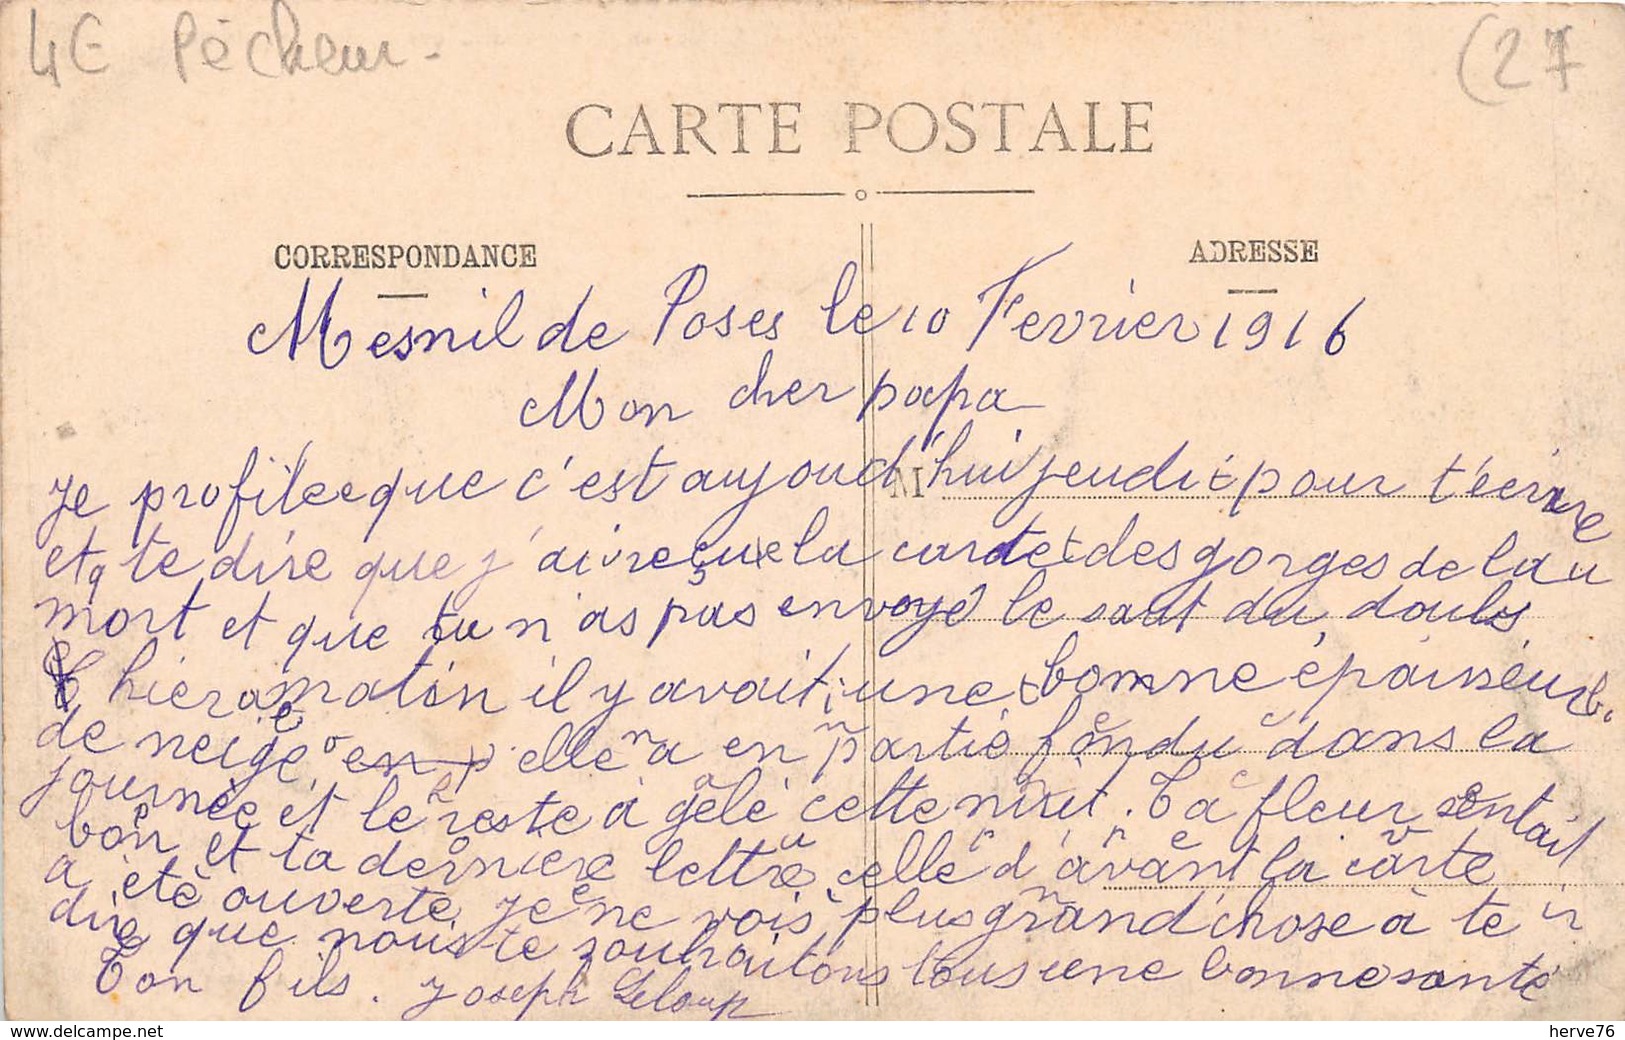 4€ Pêcheur - (27
CARTE POSTALE
CORRESPONDANCE ADRESSE
Mesnil de Poses le 10 Fevrier 1916
Mon cher papa
M
je profite que c'est aujourd'hui jeudi pour t'écrire
et te dire que j'ai reçue la carte des gorges de la
mort et que tu n'as pas envoyé le saut du doubs
hier matin il y avait une bonne épaisseur
de neige elle a en partie fondu dans la
journée et le reste a gelé cette nuit. Ta fleur sentait
bon et ta derniere lettre celle d'avant la carte
a été ouverte je ne vois plus grand'chose à te
dire que nous te souhaitons tous une bonne santé
Ton fils. Joseph Leloup
www.delcampe.net herve76